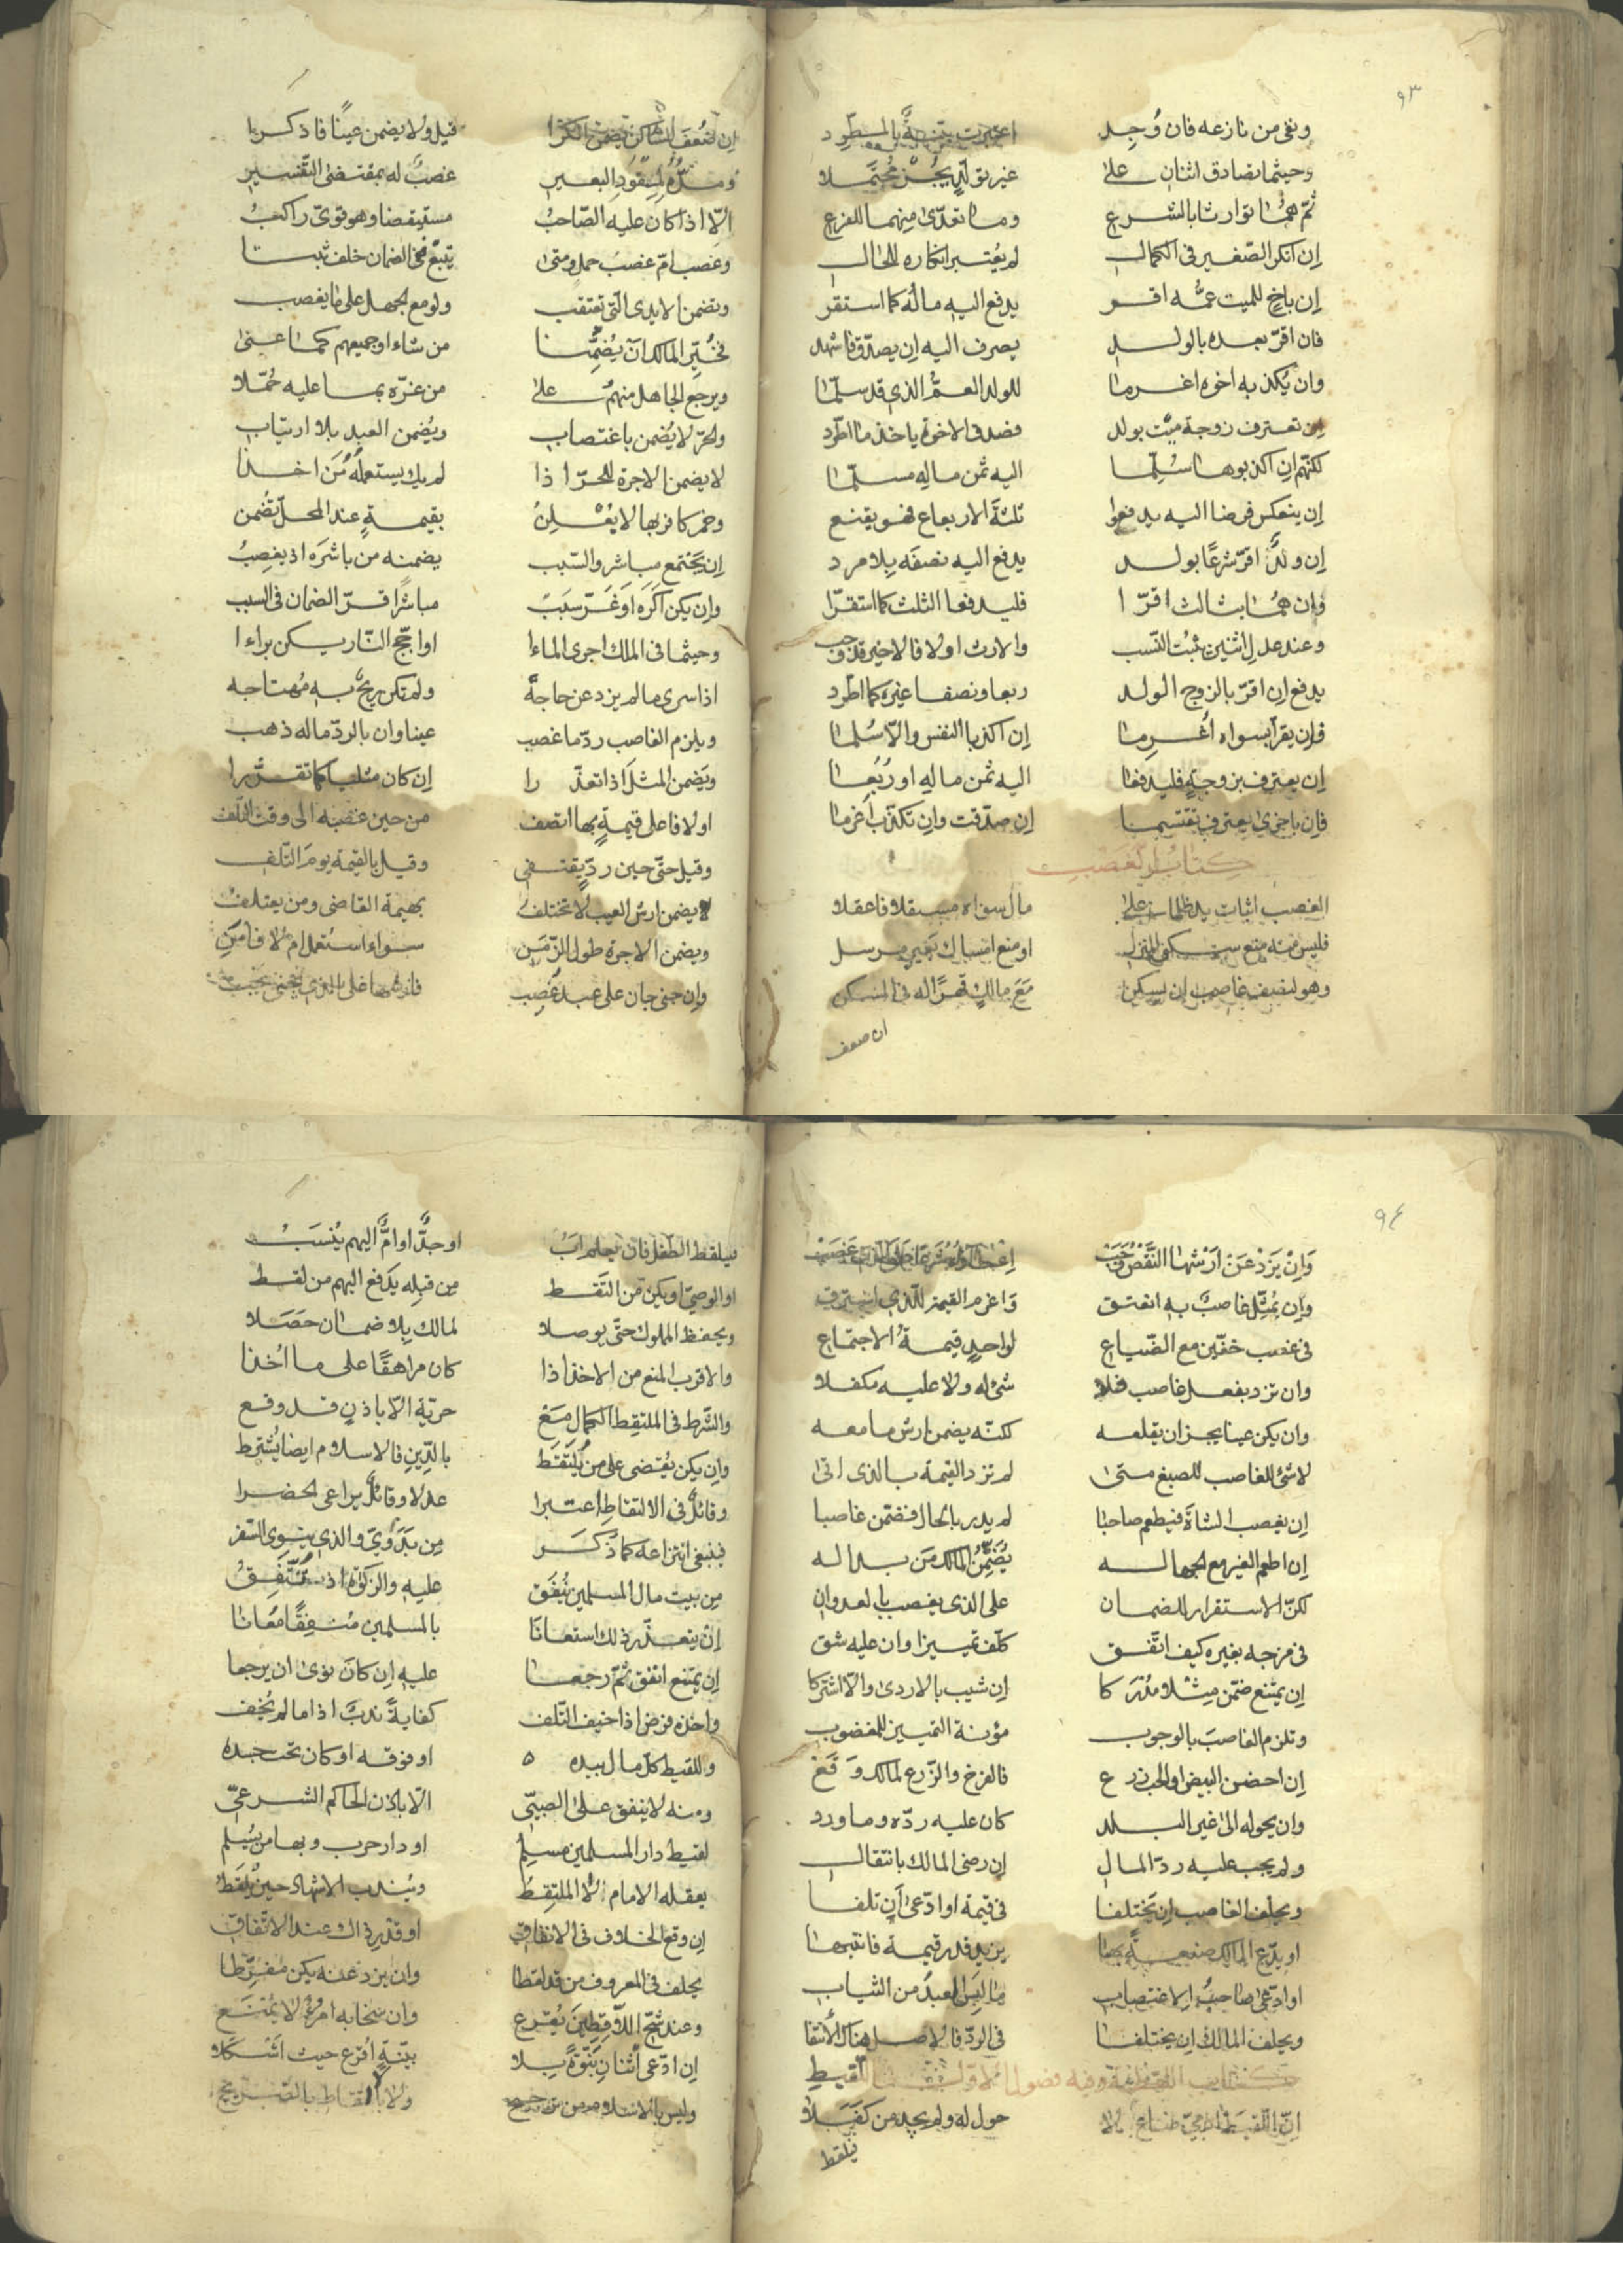 ٩٣
ونفى من نازعه فان وُجِد اعتبرت بالمطرد
وحيثما تصادق اثنان على غير تولّد يجُز محتملا
ثمّ هما توارثا بالشرع وما تعدّى منهما للفرع
إن انكر الصّغير فى الكمال لم يُعتبر انكاره للحال
إن باخٍ للميت عمّه اقر يدفع اليه ماله كما استقر
فان اقرّ بعده بالولد يصرف اليه إن يصدّق فاشهد
وان يُكذبه اخوه اغرما للولد العمّ الذي قد سلّما
إن تعترف زوجة ميّت بولد فضد فى الاخوة ياخذ ما اطّرد
لكنّهم إن اكذبوها سُلّما اليه ثمن ماله مسلّما
إن ينعكس فرضا اليه يدفعوا ثلثة الارباع فهو يقنع
إن ولدٌ اقرّ شرعًا بولد يدفع اليه نصفَه بلا مرد
وإن هما بثالث اقرّا فليدفعا الثلث كما استقرّا
وعند عدل اثنين يثبت النّسب والارث اولا فالاخير قد وجب
يدفع إن اقرّ بالزوج الولد ربعا ونصفا غيره كما اطّرد
فإن يقرّا بسواه أُغرما إن اكذبا النفس والّا سُلما
إن يعترف بزوجةٍ فليدفعا اليه ثمن ماله او رُبُعا
فإن باخرى يعترف تقتسما إن صدّقت وإن تكذّب أغرما
كتاب الغصب
الغصب اثبات يد ظلما على مال سواه مستقلا فاعقلا
فليس منه منع سكنى المنزل او منع امساك بعير مرسل
وهو لنصف غاصب إن يسكن مَعَ مالكٍ قهرًا له فى المسكن
ان ضعف
إن ضعُفَ السّاكن قيل ولا يضمن عينًا فاذكرا
ومدّه لِمِقوَدِ البعير غصبٌ له بمقتضى التفسير
الّا اذا كان عليه الصّاحبُ مستيقضا وهو قويّ راكبُ
وغصب امّ غصبُ حملٍ ومتى يتبع ففى الضمان خلف ثبتا
وتضمن الايدى الّتى تعتقب ولو مع الجهل على ما يغصب
تخيّر المالك أن يُضمِّنا من شاء او جميعهم كما عنى
ويرجع الجاهل منهم على من غرّه بما عليه حُمّلا
والحرّ لا يُضمن باغتصاب ويُضمن العبد بلا ارتياب
لا يضمن الاجرة للحرّ اذا لم يك يستعمله من اخذا
وخمر كافر بها لا يُعْلِنُ بقيمةٍ عند المحلّ تُضمن
إن يَجتمع مباشر والسّبب يضمنه من باشَرَه اذ يغصِبُ
وإن يكن اكره او غرّ سببٌ مباشرًا قرّ الضمان فى السبب
وحيثما فى الملك اجرى الماءا او اجّج النّار يكن براءا
اذا سرى ما لم يزد عن حاجة ولم تكن ريحٌ به مُهتاجه
ويلزم الغاصب ردّ ما غصب عينا وان بالردّ ماله ذهب
ويَضمن المثلَ اذا تعذّرا إن كان مثليا كما تقرّرا
اولا فاعلى قيمةٍ بها اتصف من حين غصبه الى وقت التّلف
وقيل حتّى حين ردّ يقتفى وقيل بالقيمة يومَ التّلف
لا يضمن ارش العيب لا تختلف بهيمة القاضى ومن يعتلفُ
ويضمن الاجرة طول الزّمَن سواء استعمل ام لا
وإن جنى جانٍ على عبد غُصِب على الذى يجنى تجب
٩٤
وَإنْ يَزدْ عَنْ ارشها النّقص وَجَبْ
وإن يُمثِّل غاصبٌ به انعتق وَاغرم القيمة للّذى استرق
فى غصب خفّين مع الضّياع لواحدٍ قيمةُ الاجتماع
وان تزد بفعل غاصب فلا شئ له ولا عليه مكفلا
وان يكن عينا يجز ان يقلعه لكنّه يضمن ارش ما معه
لا شئ للغاصب للصبغ متى لم تزد القيمة بالذى اتى
إن يغصب الشاة فيطعم صاحبا لم يدر بالحال فضمن غاصبا
إن اطعم الغير مع الجهاله يُضمِّن المالك من بدا له
لكنّ الاستقرار للضمان على الذى يغصب بالعدوان
فى مزجه بغيره كيف اتّفق كلف تمييزا وان عليه شق
إن يمتنع ضمّن مِثلا مُدرَكا إن شيب بالاردى والّا اشتركا
وتلزم الغاصبَ بالوجوب مؤنة التمييز للمغضوب
إن احضن البيض او الحب زرع فالفرخ والزّرع لمالك وقع
وان يحوله الى غير البلد كان عليه ردّه وما ورد
ولم يجب عليه ردّ المال إن رضى المالك بانتقال
ويحلف الغاصب إن يَختلفا فى قيمة او ادّعى أن تلفا
او يدّع المالك صنعةً بها يزيد قدر قيمة فانتبها
او ادّعى صاحبُ الاغتصاب ما لبَس العبدُ من الثياب
ويحلف المالك إن يختلفا فى الردّ فالاصل هناك الانتفا
كتاب اللقطة وفيه فصول الاوّل اللّقيطِ
إنّ اللّقيط ضائع لا حول له ولم يجد من كفَلا
فيلقط
فيلقط الطفل فان يعلم ابُ او جدٌّ او امٌّ اليهم يُنسَبُ
او الوصيّ او يكن من التَقط مِن قبلِه يدفع اليهم من لقط
ويحفظ المملوك حتّى يوصلا لمالك بلا ضمان حَصَلا
والاقرب المنع من الاخذ اذا كان مراهقًا على ما اُخذا
والشّرط فى الملتقِط الكمال مَعْ حرّية الّا باذنٍ قد وقع
وإن يكن يُقضى على من يُلتَقَط بالدّينِ فالاسلام ايضا يُشترط
وقائلٌ فى الالتقاطِ اعتبرا عدلا وقائلٌ يراعى الحضرا
فينبغى انتزاعه كما ذُكَر مِن بَدَويٍّ والذى ينوى السّفر
مِن بيت مال المسلمين يُنفَق عليه والزكوة اذ تتّفِقُ
إنْ يتعذّر ذلك استعانَا بالمسلمين مُنفِقًا مُعانا
إن يمتنع انفق ثمّ رجعا عليه إن كانَ نوى ان يرجعا
واخذه فرض اذا خيف التّلف كفايةً ندبٌ اذا ما لم يُخَف
وللقيط كلّ مال بيده او فوقه او كان تحت جسده
ومنه لا ينفق على الصبىّ الّا باذن الحاكم الشرعىّ
لقيط دار المسلمين مسلِم او دار حرب وبها من يُسلم
يعقله الامام لا الملتقِطُ ويُندب الاشهاد حين يُلقَطُ
إن وقع الخلاف فى الانفاق او قدْر ذاك عند الاتّفاق
يحلف فى المعروف من قد لقطا وان يزد عنه يكن مُفرّطا
وعند شحّ اللّاقِطينَ يُقرع وان سخا به امرؤ لا يُمتنَع
إن ادّعى اثنان بُنوّةً بلا بيّنةٍ اُقرع حيث اشكلا
وليس بالاسلام من ترجح ولا بالالتقاط